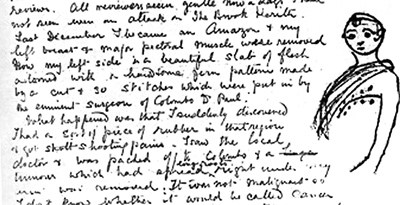 reviews. All reviewers seem gentle now a days. I have
not seen even an attack on The Brook Kerith.
Last December I became an Amazon & my
left breast & major pectoral muscle were removed
Now my left side is a beautiful slab of flesh
adorned with a handsome fern pattern made
by a cut & 30 stitches which were put in by
the eminent surgeon of Colombo Dr Paul.
What happened was that I suddenly discovered
I had a sort of piece of rubber in that region
& got short shooting pains. I saw the local
doctor & was packed off to Colombo & a
tumour which had spread right under my
arm was removed. It was not malignant so
I don't know whether it would be called cancer